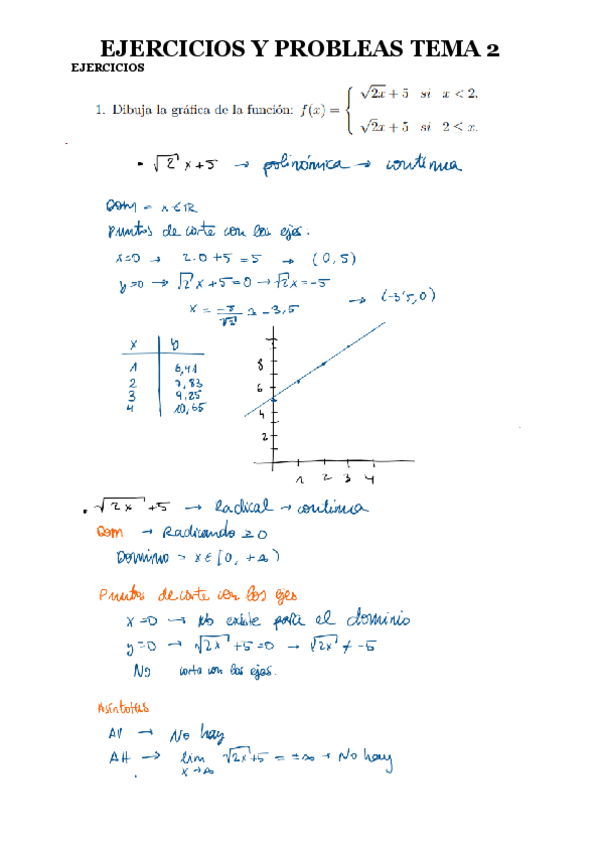 EJERCICIOS Y PROBLEAS TEMA 2
EJERCICIOS
1. Dibuja la gráfica de la función: f(x) = { √2x + 5 si x < 2,
√2x + 5 si 2 < x.
• √2 x + 5 → polinómica → continua
Dom = x ∈ ℝ
Puntos de corte con los ejes.
x=0 → 2·0+5 = 5 → (0,5)
y=0 → √2 x + 5 = 0 → √2 x = -5
x = -5/√2 = -3,5 → (-3'5,0)
x y
1 6,41
2 7,83
3 9,25
4 10,65
8
6
4
2
1 2 3 4
• √2x + 5 → Radical → continua
Dom → Radicando ≥ 0
Dominio = x ∈ [0, +∞)
Puntos de corte con los ejes
x=0 → No existe para el dominio
y=0 → √2x + 5 = 0 → √2x ≠ -5
No corta con los ejes.
Asíntotas
AV → No hay
AH → lim x→∞ √2x + 5 = ±∞ → No hay